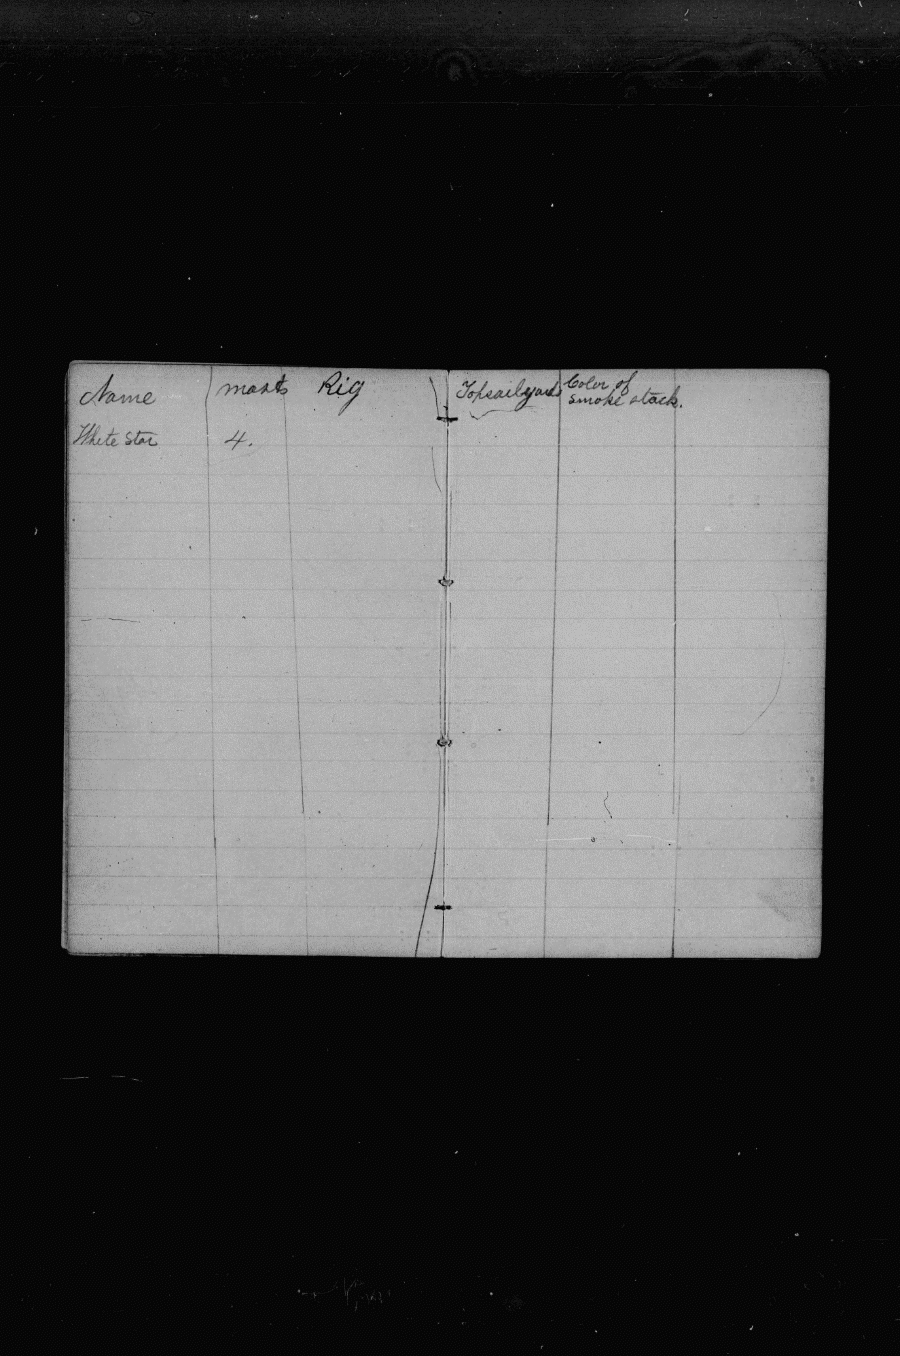 Name masts Rig Topsailyards Color of
smoke stack.
White Star 4.